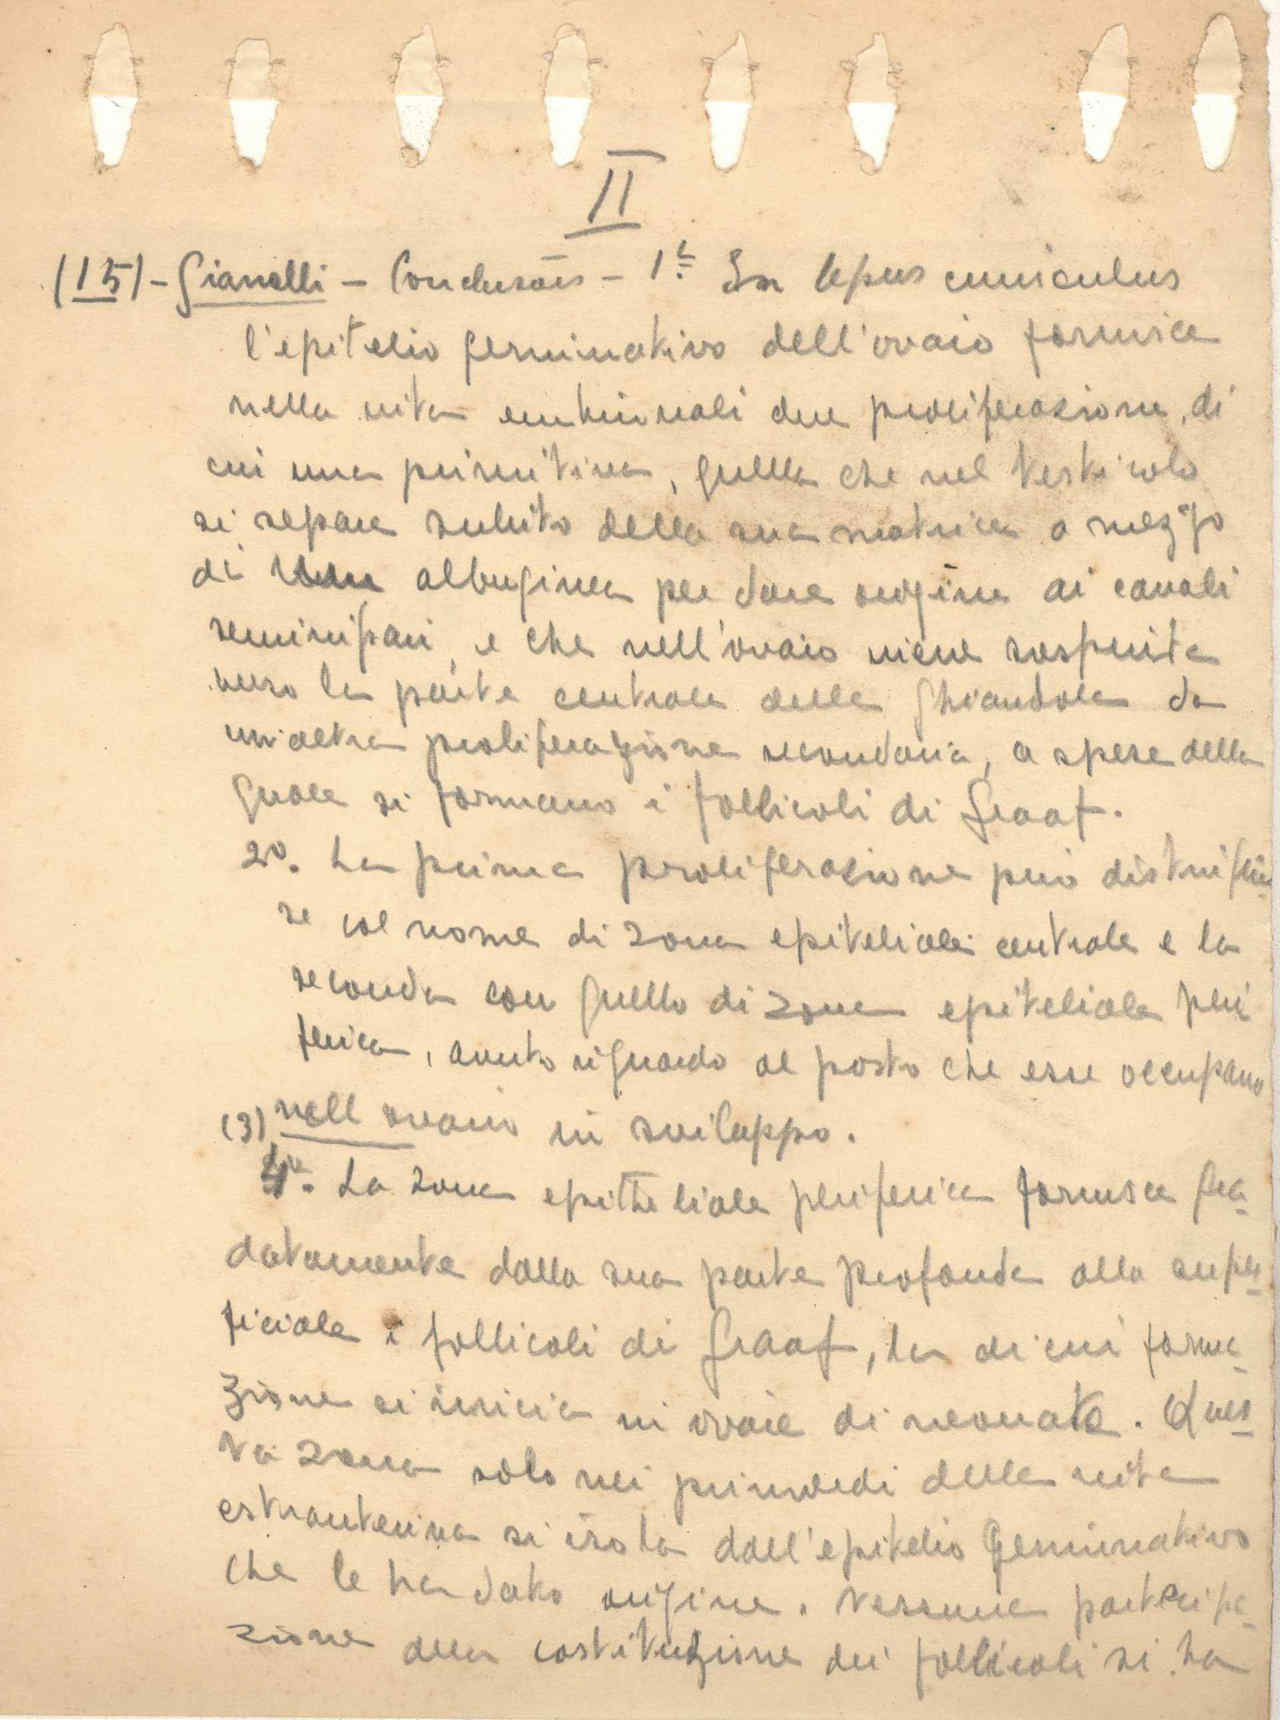 II
(15) - Gianelli - Conclusões - 1ª. In lepus cuniculus
l'epitelio germinativo dell'ovaio fornisce
nella vita embrionali due proliferazione, di
cui una primitiva, quella che nel testicolo
si separa subito della sua matrice a mezzo
di albuginea per dare origine ai canali
seminipari, e che nell'ovaio viene respinta
verso la parte centrale della ghiandola da
un'altra proliferazione secondaria, a spese della
quale si formano i follicoli di Graaf.
2º. La prima proliferazione può distingue
se col nome di zona epiteliale centrale e la
seconda con quello di zona epiteliale peri
ferica, avuto riguardo al posto che esse occupano
(3) nell ovaio in sviluppo.
4º. La zona epitheliale periferica fornisce gra-
datamente dalla sua parte profonda alla super-
ficiale i follicoli di Graaf, la di cui forma-
zione si inicia in ovaie di neonate. Ques-
ta zona solo nei primordi della vita
estrauterina si isola dall'epitelio germinativo
che le ha dato origine. Nessuna partecipa-
zione della costituzione dei follicoli si ha